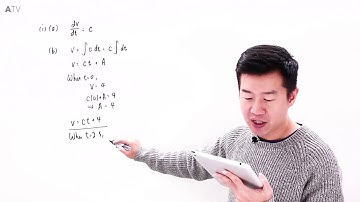 ATV
(i) (a) dv/dt = c
(b) v = ∫ c dt = c ∫ dt
v = ct + A
When t=0,
v = 4
c(0)+A = 4
⇒ A = 4
v = ct + 4
When t=2 s,